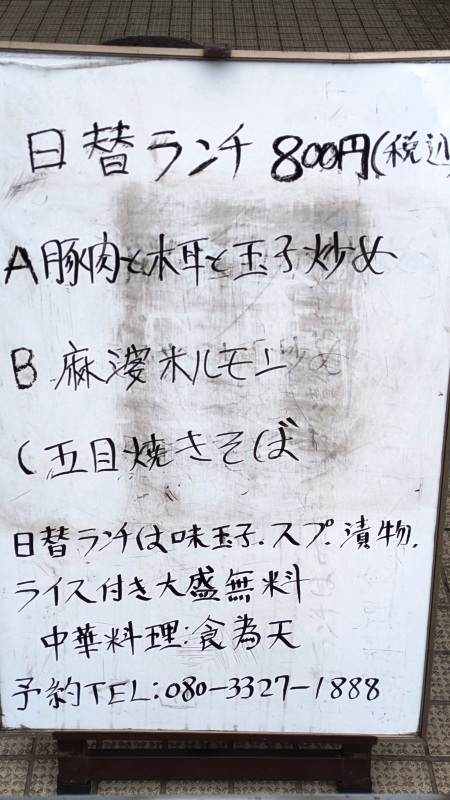 日替ランチ 800円(税込
A豚肉と木耳と玉子炒め
B 麻婆米ルモン炒め
C 五目焼きそば
日替ランチは味玉子.スプ.漬物.
ライス付き大盛無料
中華料理:食為天
予約TEL:080-3327-1888